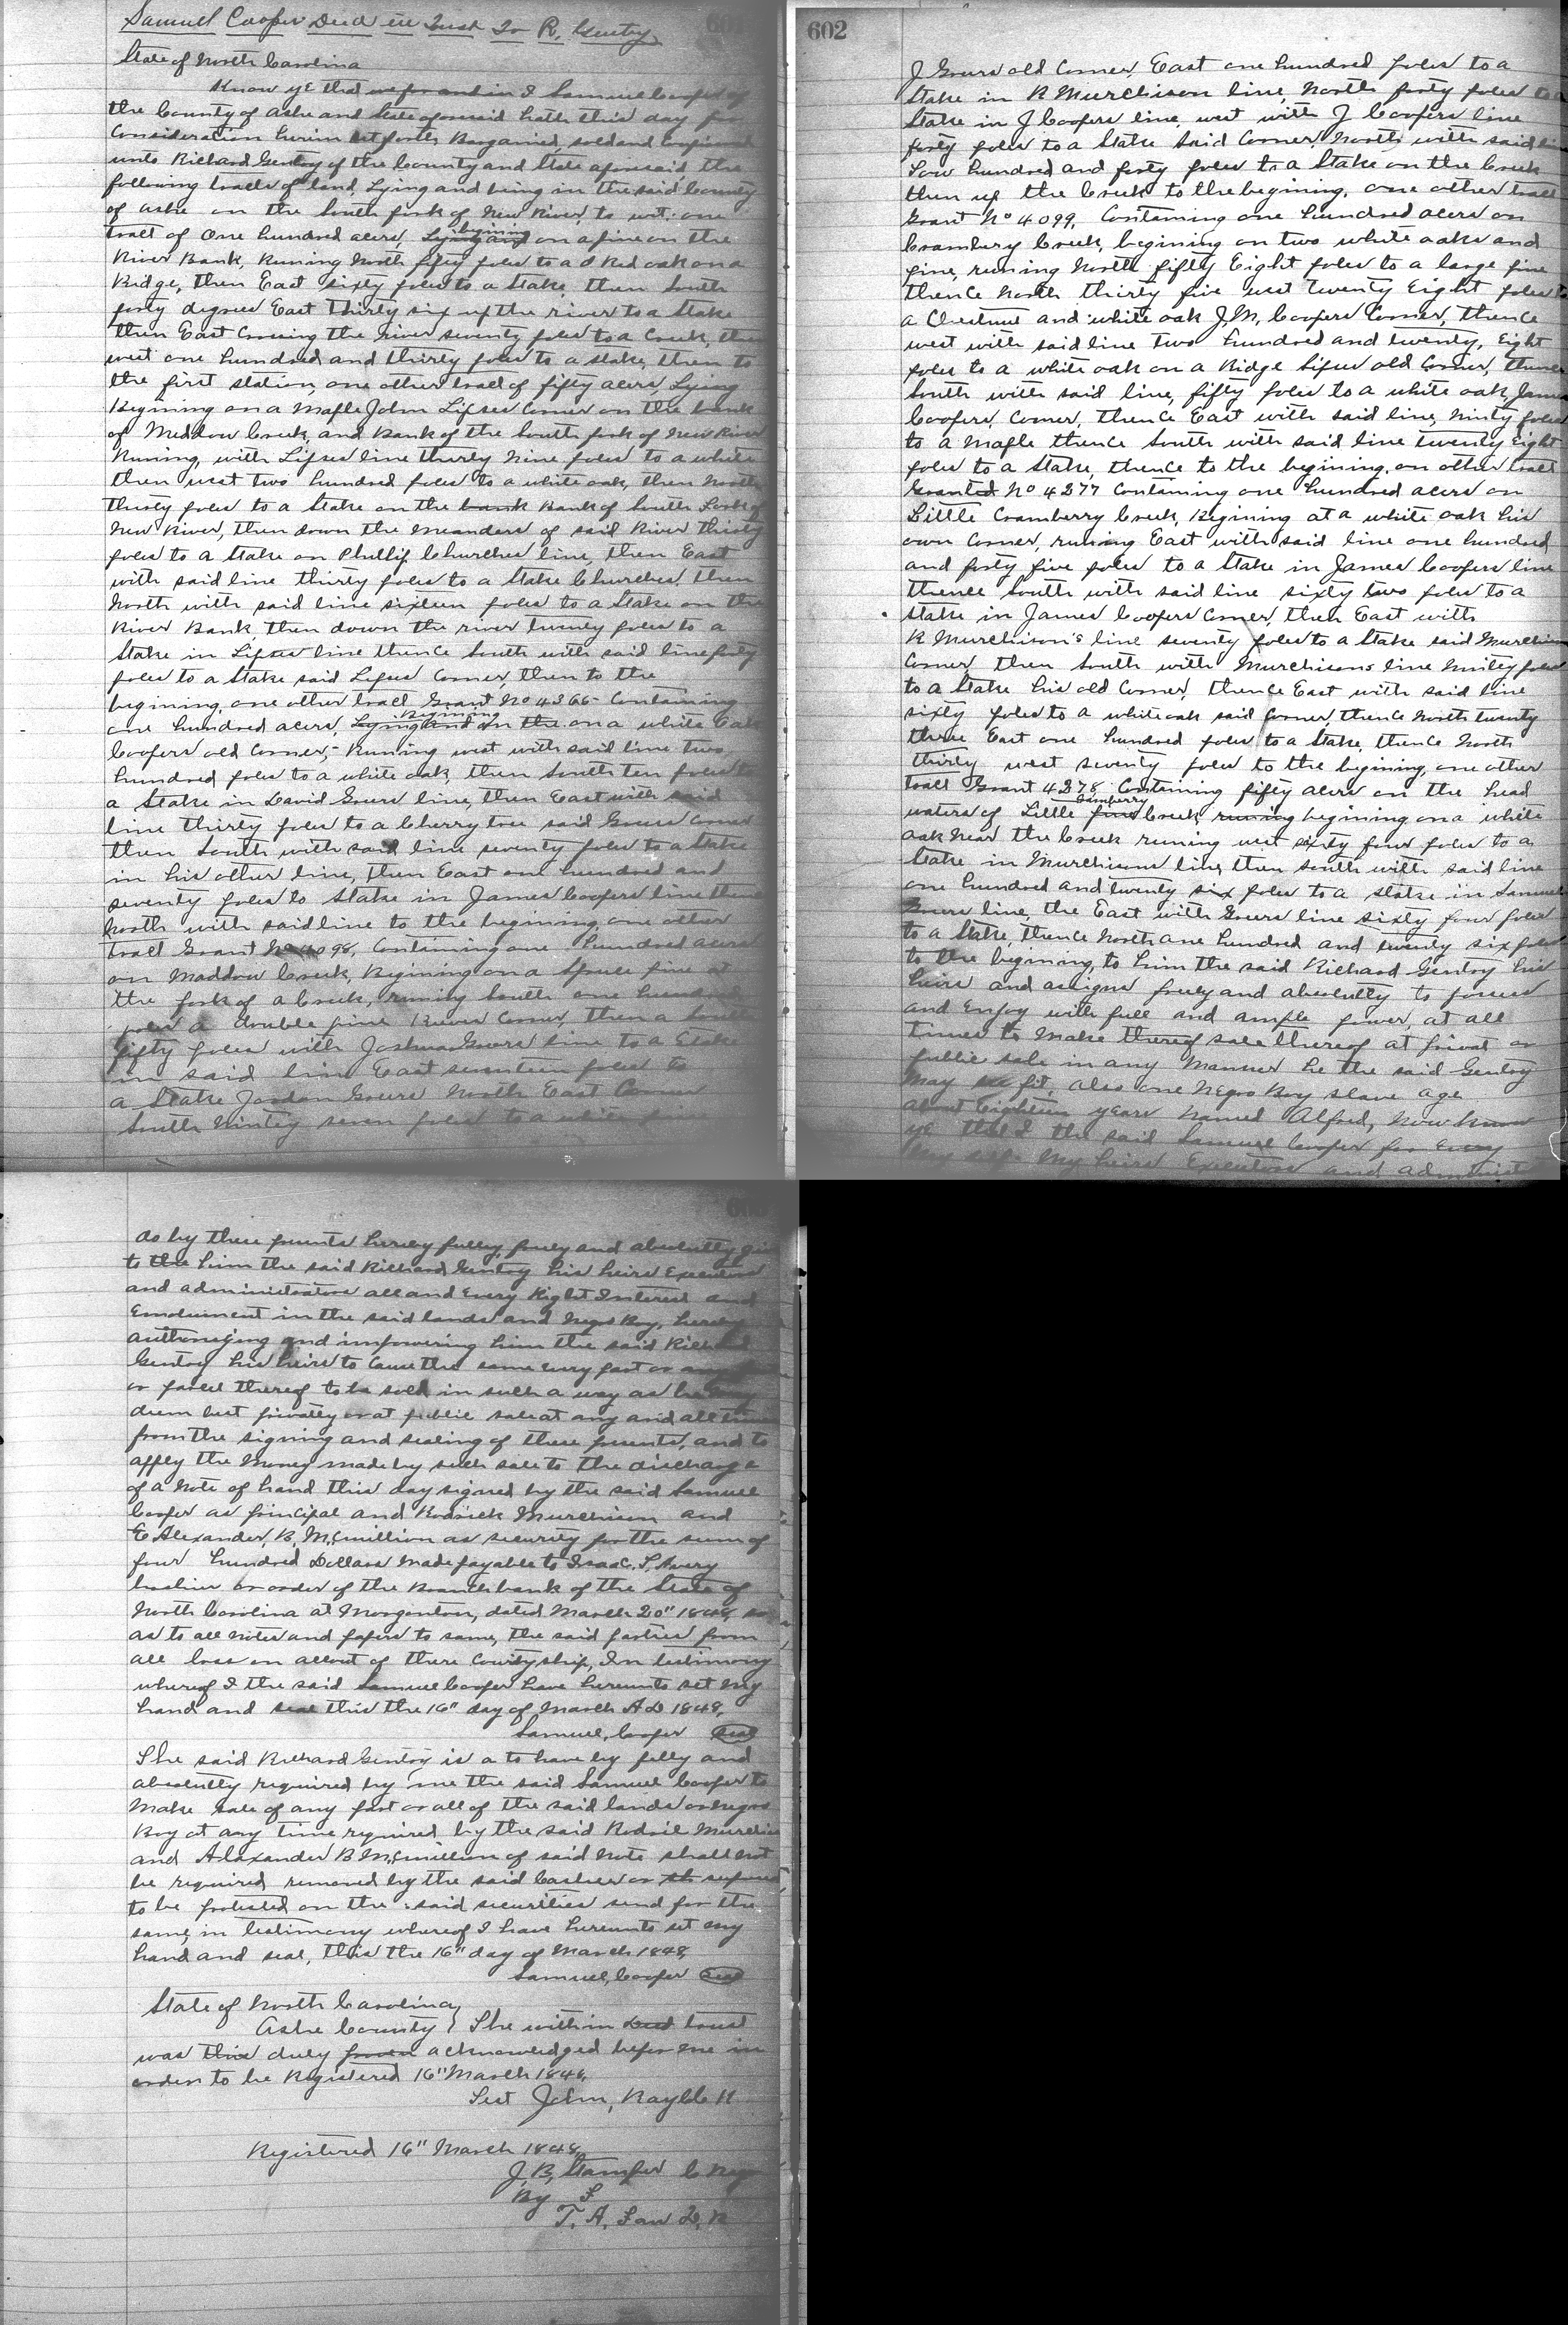 Samuel Cooper Deed in Trust To R. Gentry
State of North Carolina
Know ye that we for and in I Samuel Cooper of
the County of Ashe and State aforesaid hath this day for
Consideration herein set forth Bargained, sold and
unto Richard Gentry of the County and State aforesaid, the
following tracts of land, Lying and being in the said County
of Ashe on the South fork of New River, to wit: one
tract of One hundred acers, Lying and begining on a pine on the
River Bank, Runing North fifty poles to a d Red oak on a
Ridge, then East sixty poles to a Stake then South
forty degrees East Thirty six up the river to a Stake
then East Crossing the river seventy poles to a Creek, then
west one hundred and thirty poles to a stake, then to
the first station, one other tract of fifty acers, Lying
Begining on a Maple John Lipses Corner on the bank
of Meddow Creek, and Bank of the South fork of New River
Runing, with Lipses line thirty Nine poles to a white
then west two hundred poles to a white oak, then North
thirty poles to a Stake on the bank Bank of South Fork of
New River, then down the Meanders of said River thirty
poles to a Stake on Phillip Churches line, then East
with said line thirty poles to a Stake Churches then
North with said line sixteen poles to a Stake on the
River Bank, then down the river twenty poles to a
Stake in Lipses line thence South with said line forty
poles to a Stake said Lipses Corner, then to the
begining, one other tract Grant No 4366 Containing
one hundred acers, Lying and in the Begining on a white Oak
Coopers old Corner, Runing west with said line two
hundred poles to a white oak then South ten poles to
a Stake in David Gours line, then East with said
line thirty poles to a Cherry tree said Gours Corner
then South with said line seventy poles to a Stake
in his other line, then East one hundred and
seventy poles to Stake in James Coopers line then
North with said line to the begining, one other
tract Grant No 4098, Containing one hundred acers
on Maddow Creek, Begining on a Spruce pine at
the fork of a Creek, runing South one hundred
poles a double pine Corner, then a South
fifty poles with Joshua Gours line to a Stake
in said line East seventeen poles to
a Stake Jordan Gours North East Corner
South Ninty seven poles to a white
602
J Gours old Corner, East one hundred poles to a
Stake in R Murchison line, North forty poles to a
Stake in J Coopers line west with J Coopers line
forty poles to a Stake Said Corner, North with said line
Four hundred and forty poles to a Stake on the Creek
then up the Creek to the begining, one other tract
Grant No 4099, Containing one hundred acers on
Crambery Creek, begining on two white oaks and
pine, runing North fifty Eight poles to a large pine
thence North thirty five west Twenty Eight poles to
a Chestnut and white oak J.M. Coopers Corner, thence
west with said line two hundred and twenty, Eight
poles to a white oak on a Ridge Lipses old Corner, thence
South with said line, fifty poles to a white oak, James
Coopers, Corner, thence East with said line, Ninty poles
to a Maple thence South with said line twenty Eight
poles to a Stake, thence to the begining, on other tract
Granted No 4277 Containing one hundred acers on
Little Cramberry Creek, Begining at a white oak his
own Corner, runing East with said line one hundred
and forty five poles to a Stake in James Coopers line
thence South with said line sixty two poles to a
stake in James Coopers Corner, then East with
R Murchison's line seventy poles to a Stake said Murchison
Corner, then South with Murchisons line Ninity poles
to a Stake his old Corner, thence East with said line
sixty poles to a white oak said Corner, thence North twenty
three East one hundred poles to a Stake, thence North
thirty west seventy poles to the begining, one other
tract Grant 4278, Containing fifty acers on the head
waters of Little fork Camberry Creek, runing begining on a white
oak near the Creek runing west sixty four poles to a
Stake in Murchisons line, then south with said line
one hundred and twenty six poles to a stake in Samuel
Gours line, the East with Gours line sixty four poles
to a Stake, thence North one hundred and twenty six poles
to the begining, to him the said Richard Gentry his
heirs and assigns freely and absolutely to possess
and Enjoy with full and ample power, at all
times to Make thereof sale thereof at privat or
public sale in any Manner he the said Gentry
May see fit, also one Negro Boy slave age
about Eighteen years Named Alfred, Now know
ye that I the said Samuel Cooper for Every
My self My heirs Executors and administ
do by these presents hereby fully, freely and absolutely give
to the him the said Richard Gentry his heirs Executors
and administrators all and Every Right Interest and
Emolument in the said lands and Negro Boy, hereby
authorizing and impowering him the said Richard
Gentry his heirs to Cause the same every part or
or parcel thereof to be sold in such a way as he may
deem best privatly or at public sale at any and all times
from the signing and sealing of these presents, and to
apply the Money made by such sale to the discharge
of a Note of hand this day signed by the said Samuel
Cooper as principal and Rodrick Murchison and
E Alexander, B. McMillion as security for the sum of
four hundred Dollars Made payable to Isaac. T. Avery
Cashier or order of the Branch bank of the State of
North Carolina at Morganton, dated March 20" 1848,
as to all Notes and papers to same, the said parties from
all loss on allout of there Courityship, In testimony
whereof I the said Samuel Cooper have hereunto set my
hand and seal this the 16" day of March AD 1848,
Samuel, Cooper Seal
The said Richard Gentry is a to have by fully and
absolutely required by me the said Samuel Cooper to
Make sale of any part or all of the said lands or Negro
Boy at any time required by the said Rodric Murchison
and Alaxander B McMillion of said Note shall not
be required removed by the said Cashier or
to be protested on the said securities send for the
same, in testimony whereof I have hereunto set my
hand and seal, this the 16" day of March 1848,
Samuel, Cooper Seal
State of North Carolina,
Ashe County } The within Deed trust
was this duly proven acknowledged befor me in
order to be Registered 16" March 1848,
Test John, Ray
Registered 16" March 1848,
J. B, Stamper C Reg
By
T. A. Faw D, R